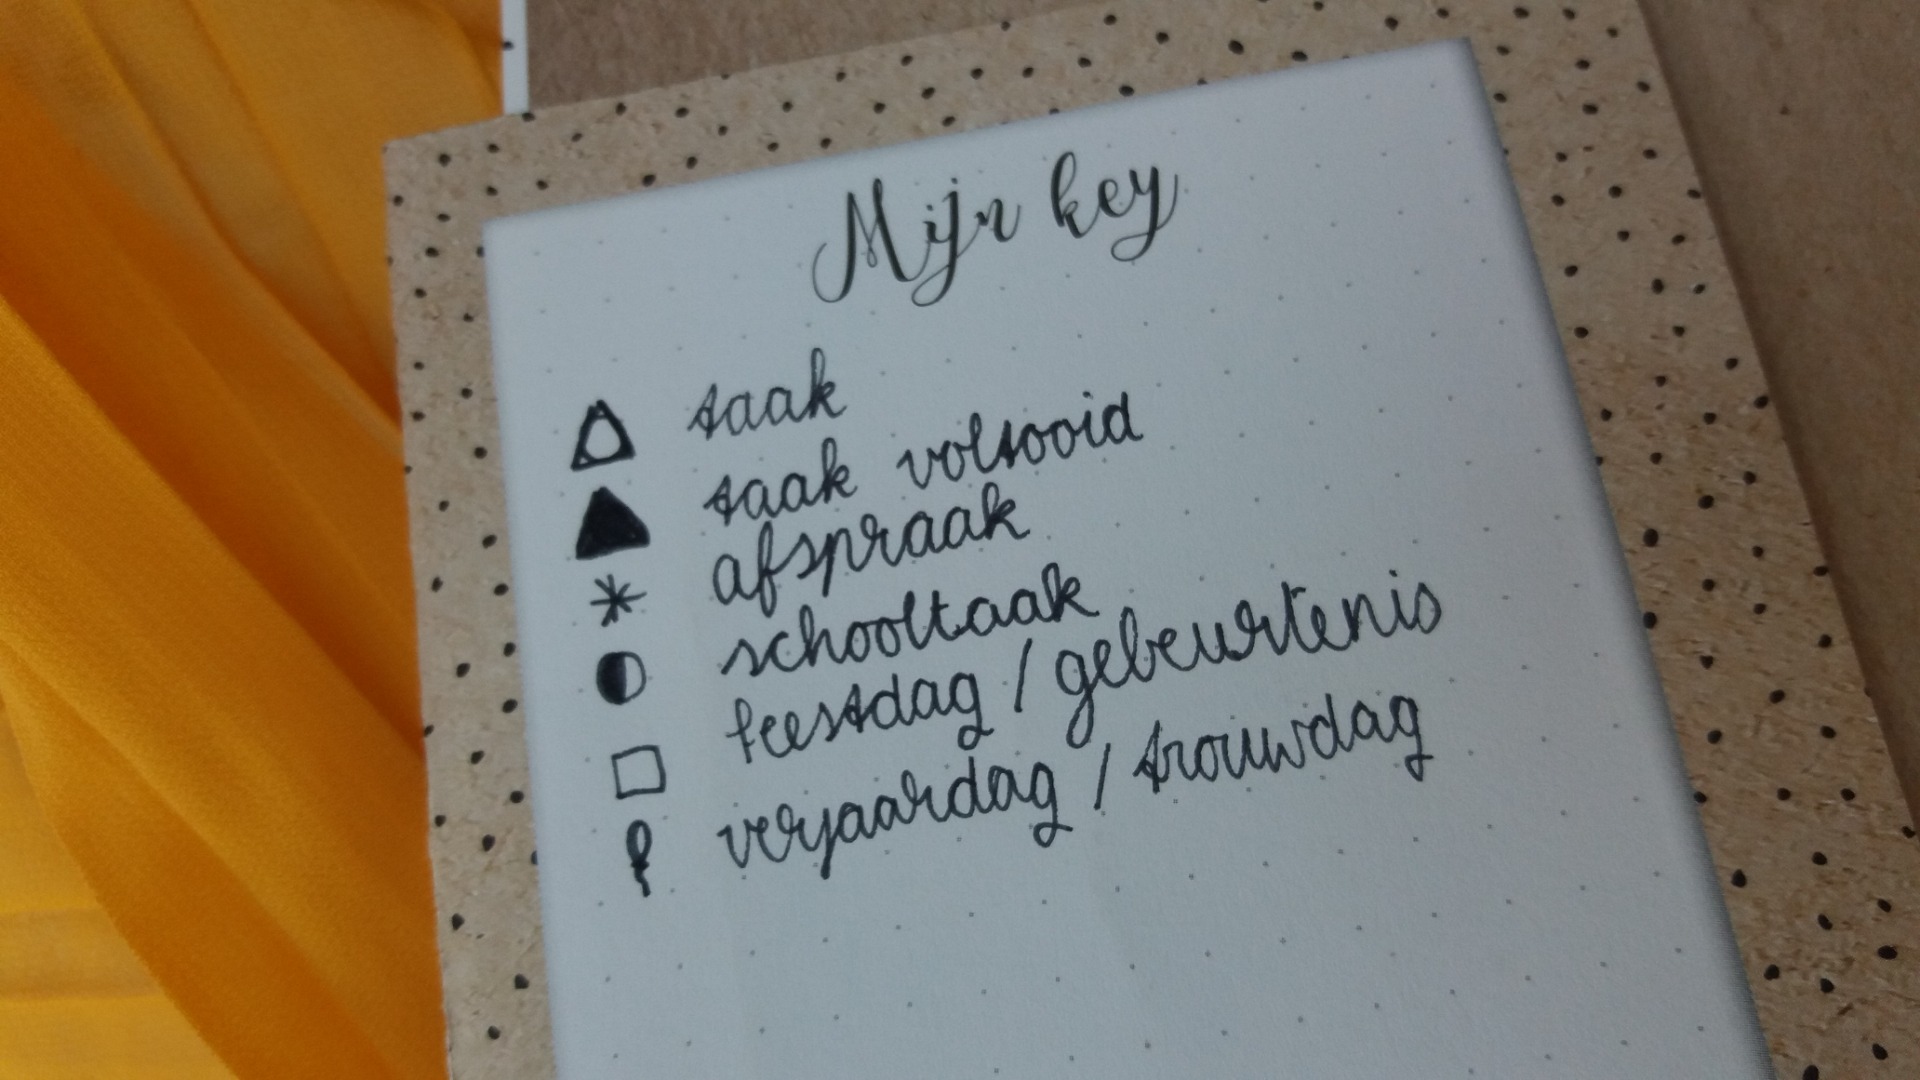 Mijn key
taak
taak voltooid
afspraak
schooltaak
feestdag / gebeurtenis
verjaardag / trouwdag